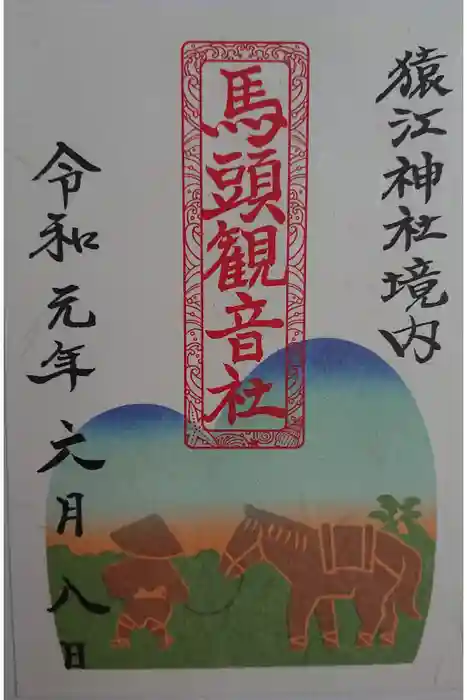 猿江神社境内
馬頭観音社
令和元年六月八日